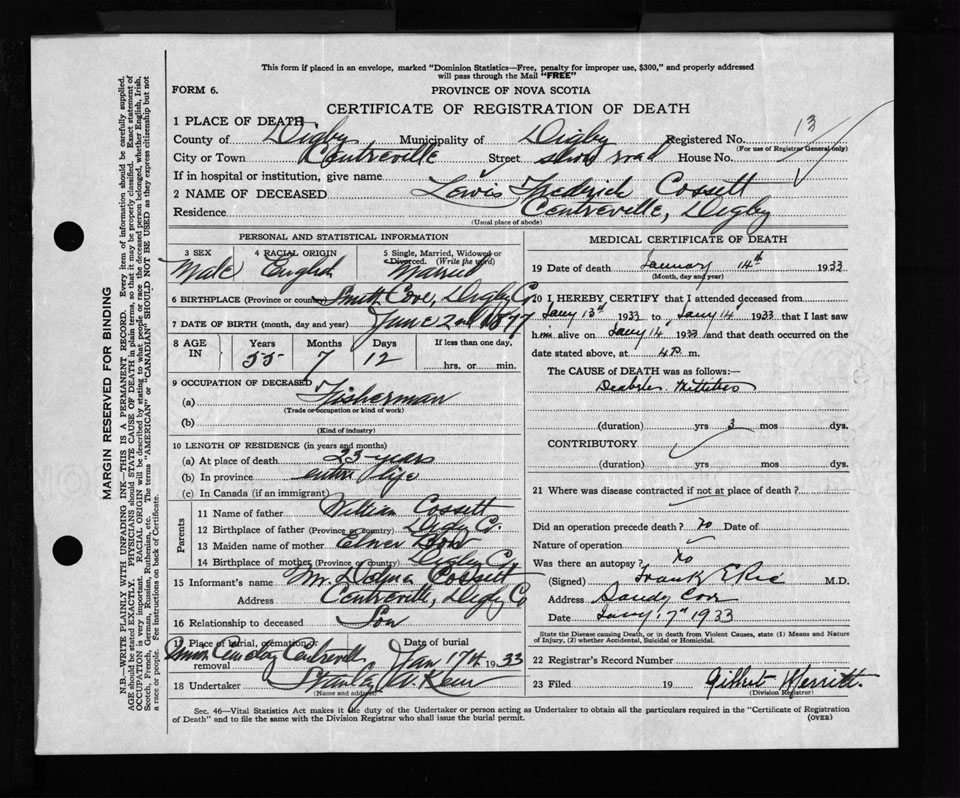 This form if placed in an envelope, marked "Dominion Statistics—Free, penalty for improper use, $300," and properly addressed
will pass through the Mail "FREE"
FORM 6.
PROVINCE OF NOVA SCOTIA
CERTIFICATE OF REGISTRATION OF DEATH
1 PLACE OF DEATH
County of Digby Municipality of Digby Registered No. 13
(For use of Registrar General only)
City or Town Centreville Street shore road House No.
If in hospital or institution, give name
2 NAME OF DECEASED Lewis Frederick Cossett
Residence Centreville, Digby
(Usual place of abode)
PERSONAL AND STATISTICAL INFORMATION
3 SEX 4 RACIAL ORIGIN 5 Single, Married, Widowed or
or Divorced. (Write the word)
Male English Married
6 BIRTHPLACE (Province or country) Smith Cove, Digby Co.
7 DATE OF BIRTH (month, day and year) June 2nd 1877
8 AGE IN Years Months Days If less than one day,
55 7 12 hrs. or min.
9 OCCUPATION OF DECEASED
(a) Fisherman
(Trade or occupation or kind of work)
(b)
(Kind of industry)
10 LENGTH OF RESIDENCE (in years and months)
(a) At place of death 23 years
(b) In province entire life
(c) In Canada (if an immigrant)
Parents
11 Name of father William Cossett
12 Birthplace of father (Province or country) Digby Co.
13 Maiden name of mother
14 Birthplace of mother (Province or country) Digby Co.
15 Informant's name Mr. Cossett
Address Centreville, Digby Co
16 Relationship to deceased Son
17 Place of burial, cremation or removal Centreville
Date of burial Jan 17th 1933
18 Undertaker Stanley W.
(Name and address)
MEDICAL CERTIFICATE OF DEATH
19 Date of death January 14th 1933
(Month, day and year)
20 I HEREBY CERTIFY that I attended deceased from
Jany 13th 1933 to Jany 14 1933 that I last saw
him alive on Jany 14 1933 and that death occurred on the
date stated above, at 4 P. m.
The CAUSE of DEATH was as follows:—
(duration) yrs 3 mos dys.
CONTRIBUTORY
(duration) yrs mos dys.
21 Where was disease contracted if not at place of death?
Did an operation precede death? no Date of
Nature of operation
Was there an autopsy? No
(Signed) Frank E Rice M.D.
Address Sandy Cove
Date Jany 17th 1933
State the Disease causing Death, or in death from Violent Causes, state (1) Means and Nature
of Injury, (2) whether Accidental, Suicidal or Homicidal.
22 Registrar's Record Number
23 Filed 19 Gilbert Merritt.
(Division Registrar)
Sec. 46—Vital Statistics Act makes it the duty of the Undertaker or person acting as Undertaker to obtain all the particulars required in the "Certificate of Registration
of Death" and to file the same with the Division Registrar who shall issue the burial permit.
(OVER)
MARGIN RESERVED FOR BINDING
N.B.—WRITE PLAINLY WITH UNFADING INK—THIS IS A PERMANENT RECORD. Every item of information should be carefully supplied.
AGE should be stated EXACTLY. PHYSICIANS should STATE CAUSE OF DEATH in plain terms, so that it may be properly classified. Exact statement of
OCCUPATION is very important. RACIAL ORIGIN will be described by stating to what people or race the deceased person belonged, whether English, Irish,
Scotch, French, German, Russian, Ruthenian, etc. The terms "AMERICAN" or "CANADIAN" SHOULD NOT BE USED as they express citizenship but not
a race or people. See instructions on back of Certificate.